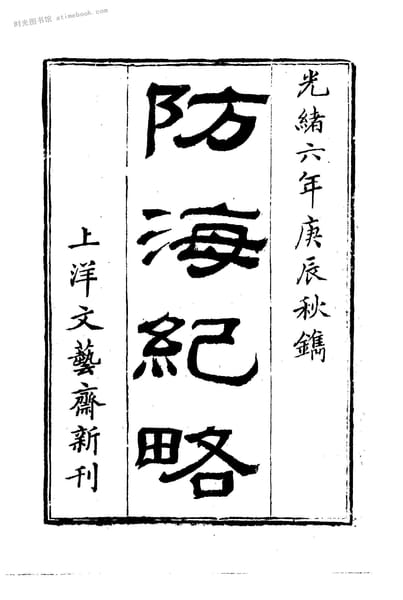 时光图书馆 atimebook.com
光緒六年庚辰秋鐫
防海紀略
上洋文藝齋新刊